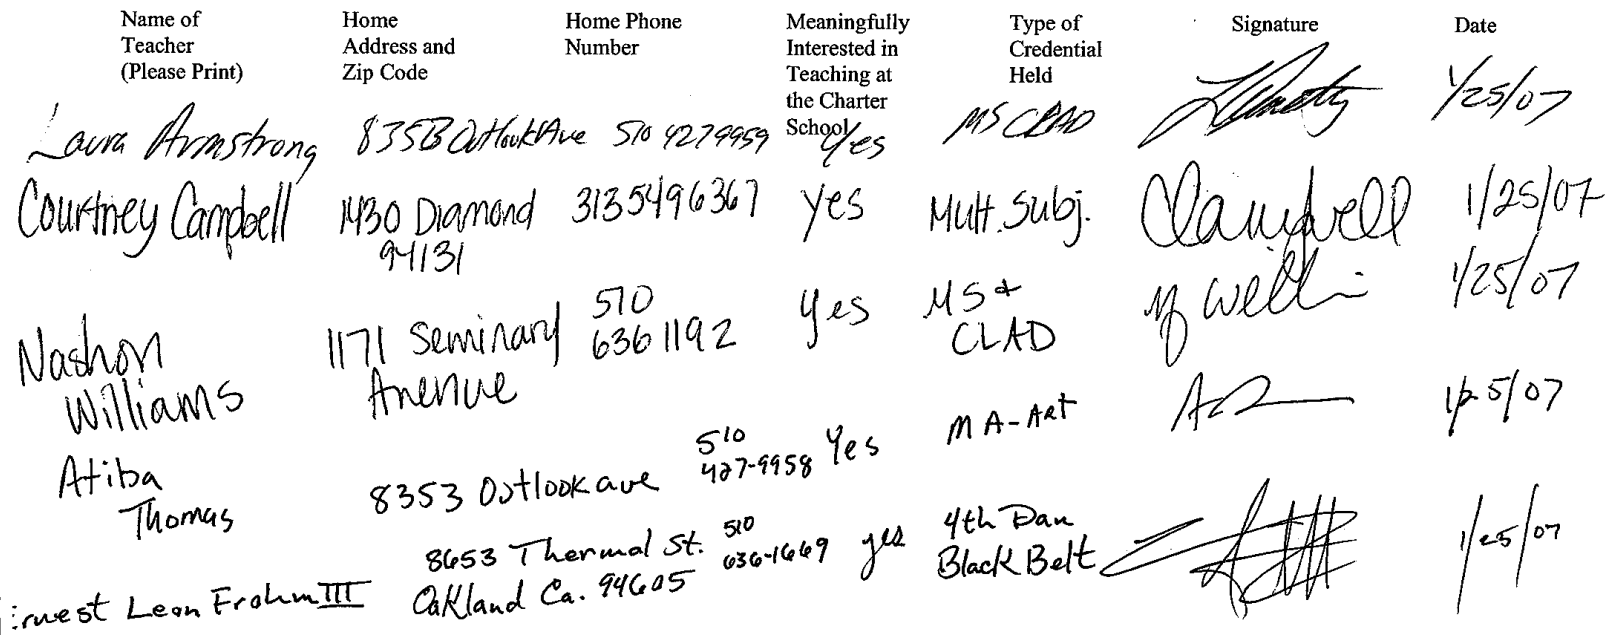 Name of Teacher (Please Print) Home Address and Zip Code Home Phone Number Meaningfully Interested in Teaching at the Charter School Type of Credential Held Signature Date
Laura Armstrong 8353 Outlook Ave 510 4279959 Yes MS CLAD 1/25/07
Courtney Campbell 1430 Diamond 94131 3135496367 yes Mult. Subj. CCampbell 1/25/07
Nashon Williams 1171 Seminary Avenue 510 6361192 yes MS + CLAD 1/25/07
Atiba Thomas 8353 Outlook ave 510 427-9958 Yes MA-Art 1/25/07
Ernest Leon Frohm III 8653 Thermal St. Oakland Ca. 94605 510 636-1669 yes 4th Dan Black Belt 1/25/07